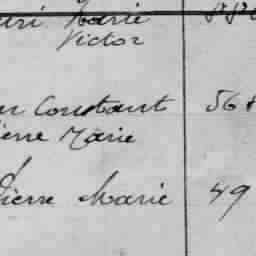 Marie
Victor
Constant 568
Pierre Marie
Pierre Marie 49